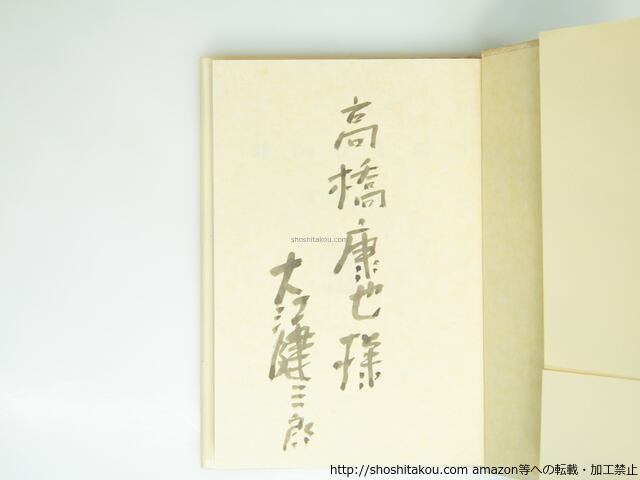 高橋康也様
大江健三郎
shoshitakou.com
http://shoshitakou.com amazon等への転載・加工禁止